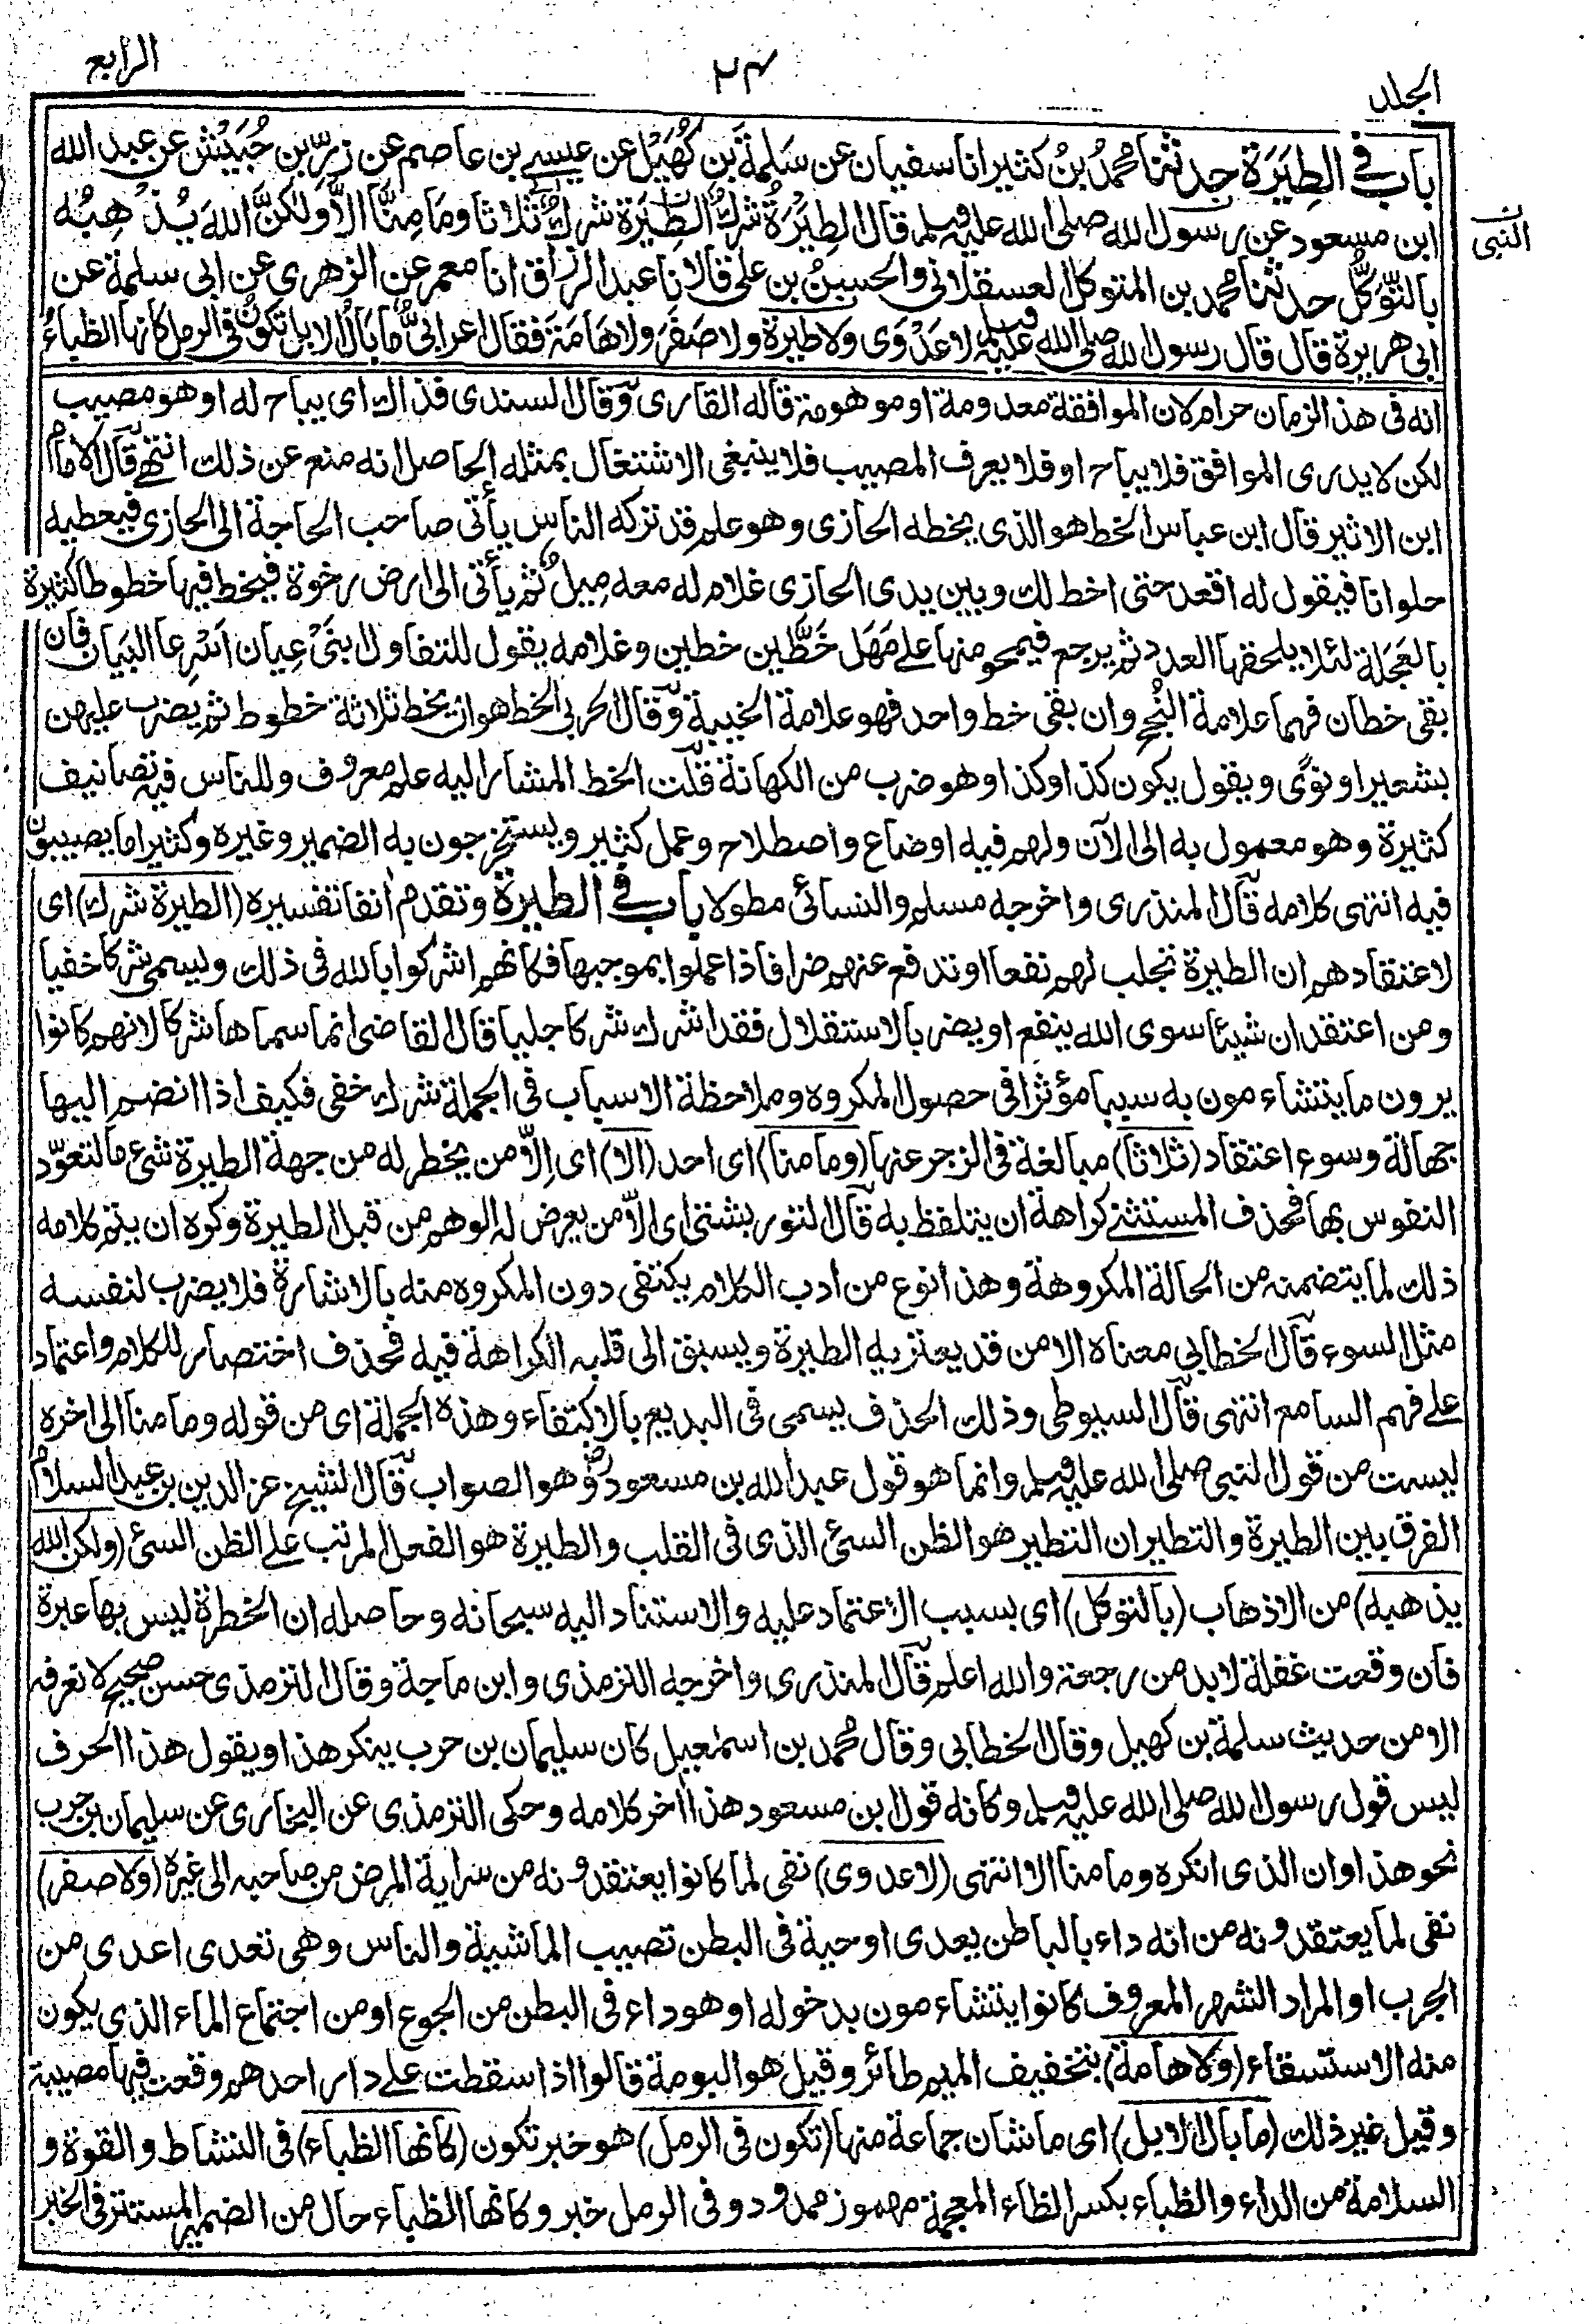 الجلد
٢٤
الرابع
باب في الطِيَرَة حدثنا محمدُ بنُ كثير انا سفيان عن سَلِمَةَ بن كُهَيْل عن عيسے بن عاصم عن زرِّ بن حُبَيْش عن عبد الله
ابن مسعود عن رسول الله صلى الله عليه وسلم قال الطِيَرَةُ شركٌ الطِيَرَة شركٌ ثلاثا وما مِنَّا الَّا ولكنَّ اللهَ يُذْهِبُه
النبي
بالتَّوَكُّل حدثنا محمد بن المتوكل العسقلانى والحسنُ بن على قالا نا عبد الرزاق انا معمر عن الزهرى عن ابى سلمة عن
ابى هريرة قال قال رسول الله صلى الله عليه وسلم لا عَدْوَى ولا طيرة ولا صَفَرَ ولا هَامَةَ فقال اعرابىٌّ ما بَالُ الابل تكونُ فى الرمل كانها الظباءُ
انه فى هذا الزمان حرام لان الموافقة معدومة او موهومة قاله القارى وقال السندى فذاك اى يباح له او هو مصيب
لكن لا يدرى الموافق فلا يباح او فلا يعرف المصيب فلا ينبغى الاشتغال بمثله الحاصل انه منع عن ذلك انتهے قال الامام
ابن الاثير قال ابن عباس الخط هو الذى يخطه الحازى وهو علم قد تركه الناس يأتى صاحب الحاجة الى الحازى فيعطيه
حلوانا فيقول له اقعد حتى اخط لك وبين يدى الحازى غلام له معه مِيلٌ ثم يأتى الى ارض رخوة فيخط فيها خطوطا كثيرة
بالعَجَلة لئلا يلحقها العدد ثم يرجع فيمحو منها علے مَهَل خَطَّين خطين وغلامه يقول للتفاول ابنَىْ عِيان اَسْرِعا البَيَان فان
بقى خطان فهما علامة النُجح وان بقى خط واحد فهو علامة الخيبة وقال الحربى الخط هو ان يخط ثلاثة خطوط ثم يضرب عليهن
بشعير او نوًى ويقول يكون كذا وكذا وهو ضرب من الكهانة قلت الخط المشار اليه علم معروف وللناس فيه تصانيف
كثيرة وهو معمول به الى الآن ولهم فيه اوضاع واصطلاح وعمل كثير ويستخرجون به الضمير وغيره وكثيرا ما يصيبون
فيه انتهى كلامه قال المنذرى واخرجه مسلم والنسائى مطولا باب في الطيرة وتقدم انفا تفسيره (الطيرة شرك) اى
لاعتقادهم ان الطيرة تجلب لهم نفعا او تدفع عنهم ضرا فاذا عملوا بموجبها فكانهم اشركوا بالله فى ذلك ويسمى شركا خفيا
ومن اعتقد ان شيئا سوى الله ينفع او يضر بالاستقلال فقد اشرك شركا جليا قال القاضى انما سماها شركا لانهم كانوا
يرون ما يتشاءمون به سببا مؤثرا فى حصول المكروه وملاحظة الاسباب فى الجملة شرك خفى فكيف اذا انضم اليها
جهالة وسوء اعتقاد (ثلاثا) مبالغة فى الزجر عنها (وما منا) اى احد (الا) اى اِلَّا من يخطر له من جهة الطيرة شئ ما لتعوّد
النفوس بها فحذف المستثنے كراهة ان يتلفظ به قال التوربشتى اى الَّا من يعرض له الوهم من قبل الطيرة وكره ان يتم كلامه
ذلك لما يتضمنه من الحالة المكروهة وهذا نوع من ادب الكلام يكتفى دون المكروه منه بالاشارة فلا يضرب لنفسه
مثل السوء قال الخطابى معناه الا من قد يعتريه الطيرة ويسبق الى قلبه الكراهة فيه فحذف اختصار للكلام واعتماد
علے فهم السامع انتهى قال السيوطى وذلك الحذف يسمى فى البديع بالاكتفاء وهذه الجملة اى من قوله وما منا الى اخره
ليست من قول النبى صلى الله عليه وسلم وانما هو قول عبد الله بن مسعود رض وهو الصواب قال الشيخ عز الدين بن عبد السلام
الفرق بين الطيرة والتطير ان التطير هو الظن السئ الذى فى القلب والطيرة هو الفعل المرتب علے الظن السئ (ولكن الله
يذهبه) من الاذهاب (بالتوكل) اى بسبب الاعتماد عليه والاستناد اليه سبحانه وحاصله ان الخطرة ليس بها عبرة
فان وقعت غفلة لا بد من رجعة والله اعلم قال المنذرى واخرجه الترمذى وابن ماجة وقال الترمذى حسن صحيح لا نعرفه
الا من حديث سلمة بن كهيل وقال الخطابى وقال محمد بن اسمٰعيل كان سليمان بن حرب ينكر هذا ويقول هذا الحرف
ليس قول رسول الله صلى الله عليه وسلم وكانه قول ابن مسعود هذا اٰخر كلامه وحكى الترمذى عن البخارى عن سليمان بن حرب
نحو هذا وان الذى انكره وما منا الا انتهى (لا عدوى) نفى لما كانوا يعتقدونه من سراية المرض من صاحبه الى غيره (ولا صفر)
نفى لما يعتقدونه من انه داء بالباطن يعدى او حية فى البطن تصيب الماشية والناس وهى تعدى اعدى من
الجرب او المراد الشهر المعروف كانوا يتشاءمون بدخوله او هو داء فى البطن من الجوع او من اجتماع الماء الذى يكون
منه الاستسقاء (ولا هامة) بتخفيف الميم طائر وقيل هو البومة قالوا اذا سقطت علے دار احدهم وقعت فيها مصيبة
وقيل غير ذلك (ما بال الابل) اى ما شان جماعة منها (تكون فى الرمل) هو خبر تكون (كانها الظباء) فى النشاط والقوة و
السلامة من الداء والظباء بكسر الظاء المعجمة مهموز ممدود وفى الرمل خبر وكانها الظباء حال من الضمير المستتر فى الخبر